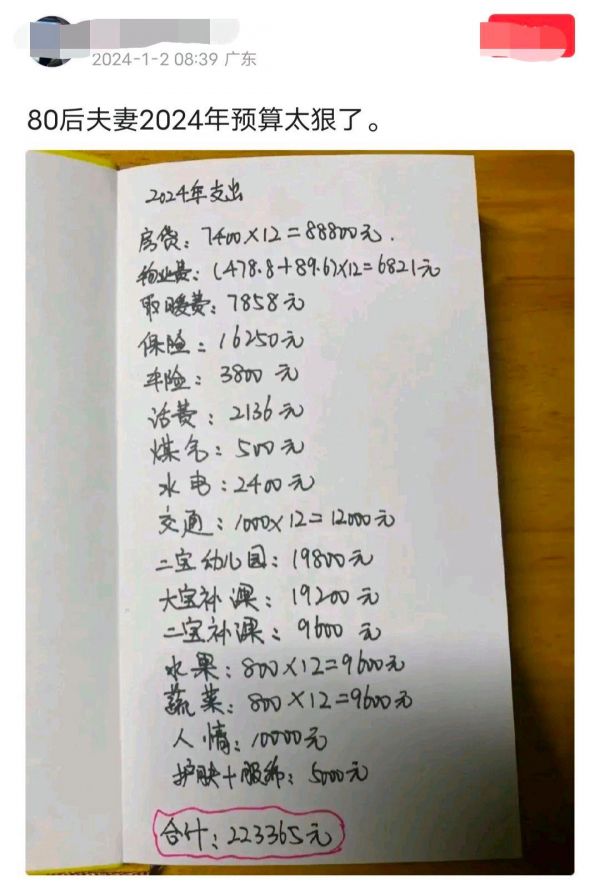 2024-1-2 08:39 广东
80后夫妻2024年预算太狠了。
2024年支出
房贷：7400×12=88800元.
物业费：(478.8+89.6)×12=6821元
取暖费：7858元
保险：16250元
车险：3800元
话费：2136元
煤气：500元
水电：2400元
交通：1000×12=12000元
二宝幼儿园：19800元
大宝补课：19200元
二宝补课：9600元
水果：800×12=9600元
蔬菜：800×12=9600元
人情：10000元
护肤+服饰：5000元
合计：223365元